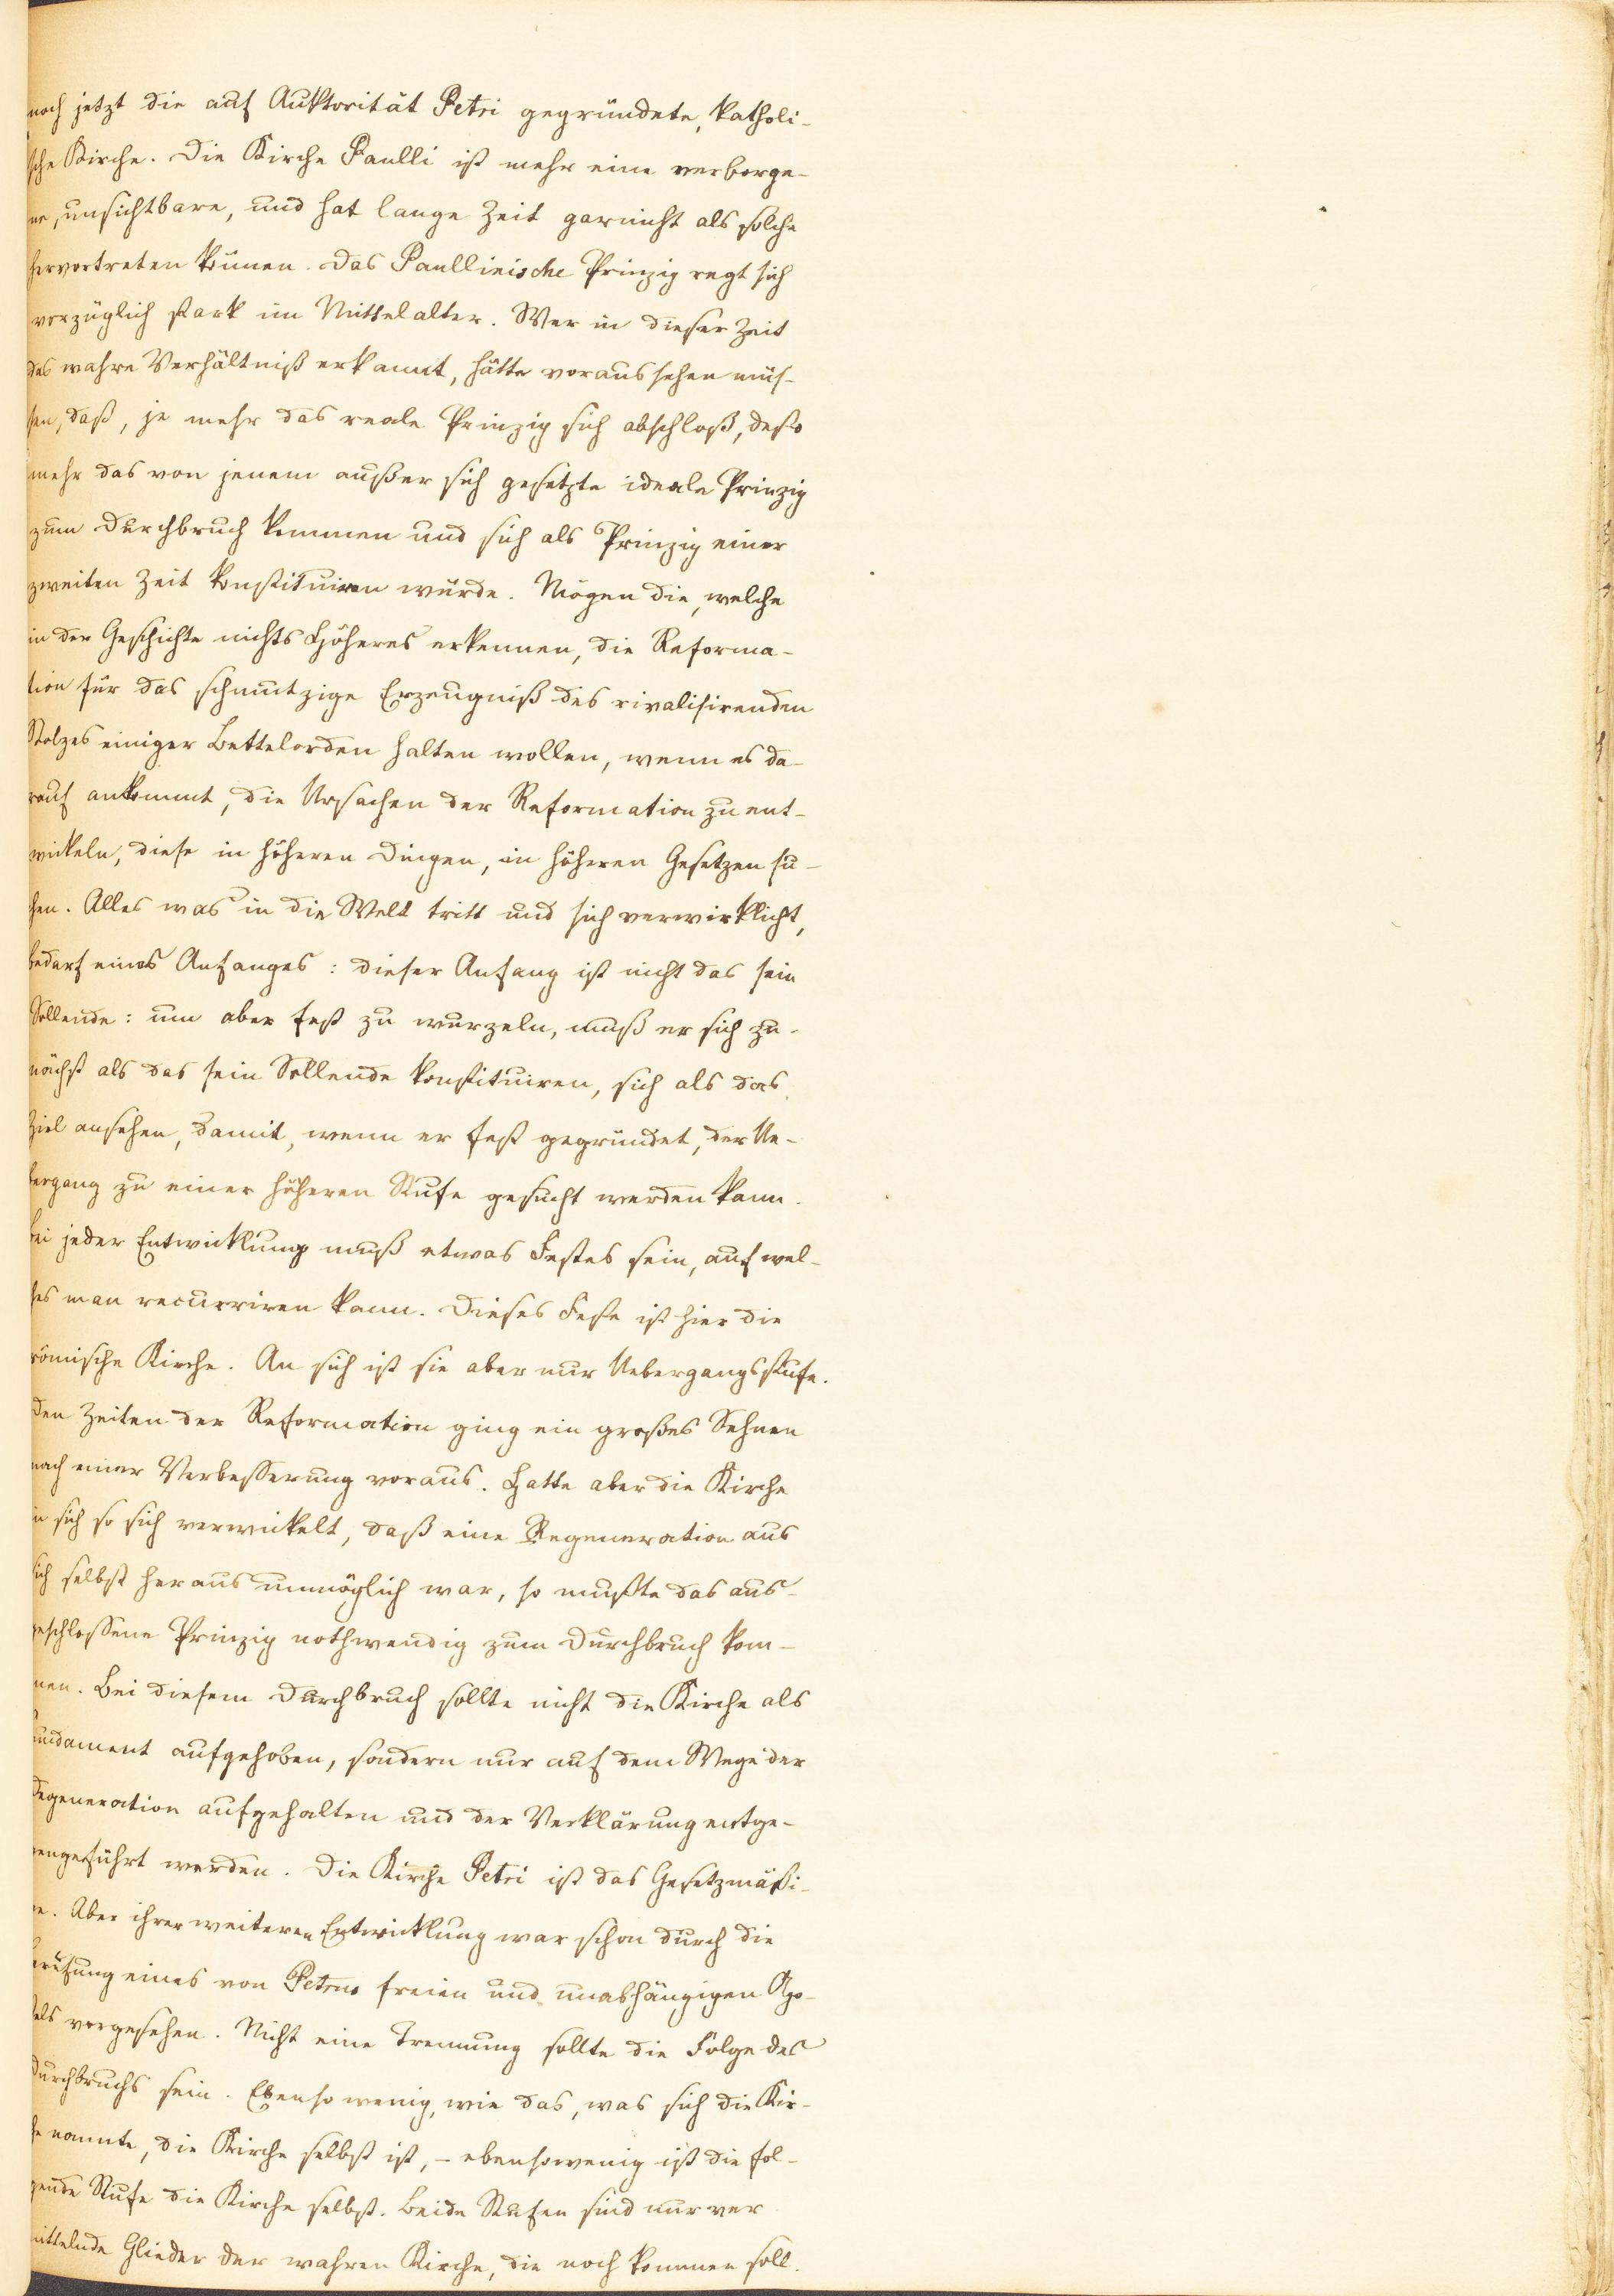 noch jetzt die auf Auktorität Petri gegründete, katholi-
sche Kirche. Die Kirche Paulli ist mehr eine verborge-
ne, unsichtbare, und hat lange Zeit garnicht als solche
hervortreten können. Das Paullinische Prinzip regt sich
vorzüglich stark im Mittelalter. Wer in dieser Zeit
das wahre Verhältniß erkannt, hätte voraussehen müs-
sen, daß, je mehr das reale Prinzip sich abschloß, desto
mehr das von jenem außer sich gesetzte ideale Prinzip
zum Durchbruch kommen und sich als Prinzip einer
zweiten Zeit konstituiren würde. Mögen die, welche
in der Geschichte nichts Höheres erkennen, die Reforma-
tion für das schmutzige Erzeugniß des rivalisirenden
Stolzes einiger Bettelorden halten wollen, wenn es da-
rauf ankommt, die Ursachen der Reformation zu ent-
wickeln, diese in höheren Dingen, in höheren Gesetzen su-
chen. Alles was in die Welt tritt und sich verwirklicht,
bedarf eines Anfanges: dieser Anfang ist nicht das sein
Sollende: um aber fest zu wurzeln, muß er sich zu-
nächst als das sein Sollende konstituiren, sich als das
Ziel ansehen, damit, wenn er fest gegründet, der Ue-
bergang zu einer höheren Stufe gesucht werden kann.
Bei jeder Entwicklung muß etwas Festes sein, auf wel-
ches man recurriren kann. Dieses Feste ist hier die
römische Kirche. An sich ist sie aber nur Uebergangsstufe.
Den Zeiten der Reformation ging ein großes Sehnen
nach einer Verbesserung voraus. Hatte aber die Kirche
in sich so sich verwickelt, daß eine Regeneration aus
sich selbst heraus unmöglich war, so mußte das aus-
geschlossene Prinzip nothwendig zum Durchbruch kom-
men. Bei diesem Durchbruch sollte nicht die Kirche als
Fundament aufgehoben, sondern nur auf dem Wege der
Degeneration aufgehalten und der Verklärung entge-
gengeführt werden. Die Kirche Petri ist das Gesetzmäßi-
ge. Aber ihrer weiteren Entwicklung war schon durch die
Berufung eines von Petrus freien und unabhängigen Apo-
stels vorgesehen. Nicht eine Trennung sollte die Folge des
Durchbruchs sein. Ebenso wenig, wie das, was sich die Kir-
che nannte, die Kirche selbst ist, - ebensowenig ist die fol-
gende Stufe die Kirche selbst. Beide Stufen sind nur ver
mittelnde Glieder der wahren Kirche, die noch kommen soll.